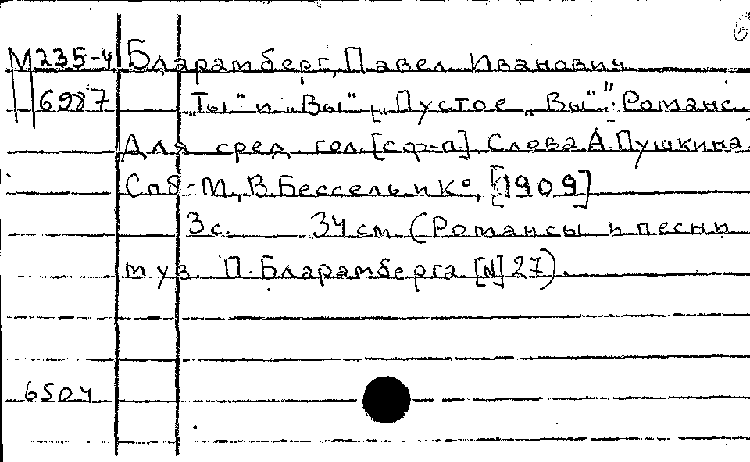 М 235-4 Бларамберг, Павел Иванович
6987 „Ты" и „Вы" [„Пустое „Вы"": Романс.
Для сред. гол. [с ф-п] Слова А. Пушкина
Спб-М., В. Бессель и К°, [1909]
3 с. 34 см. (Романсы и песни
муз. П. Бларамберга [N] 27).
6504